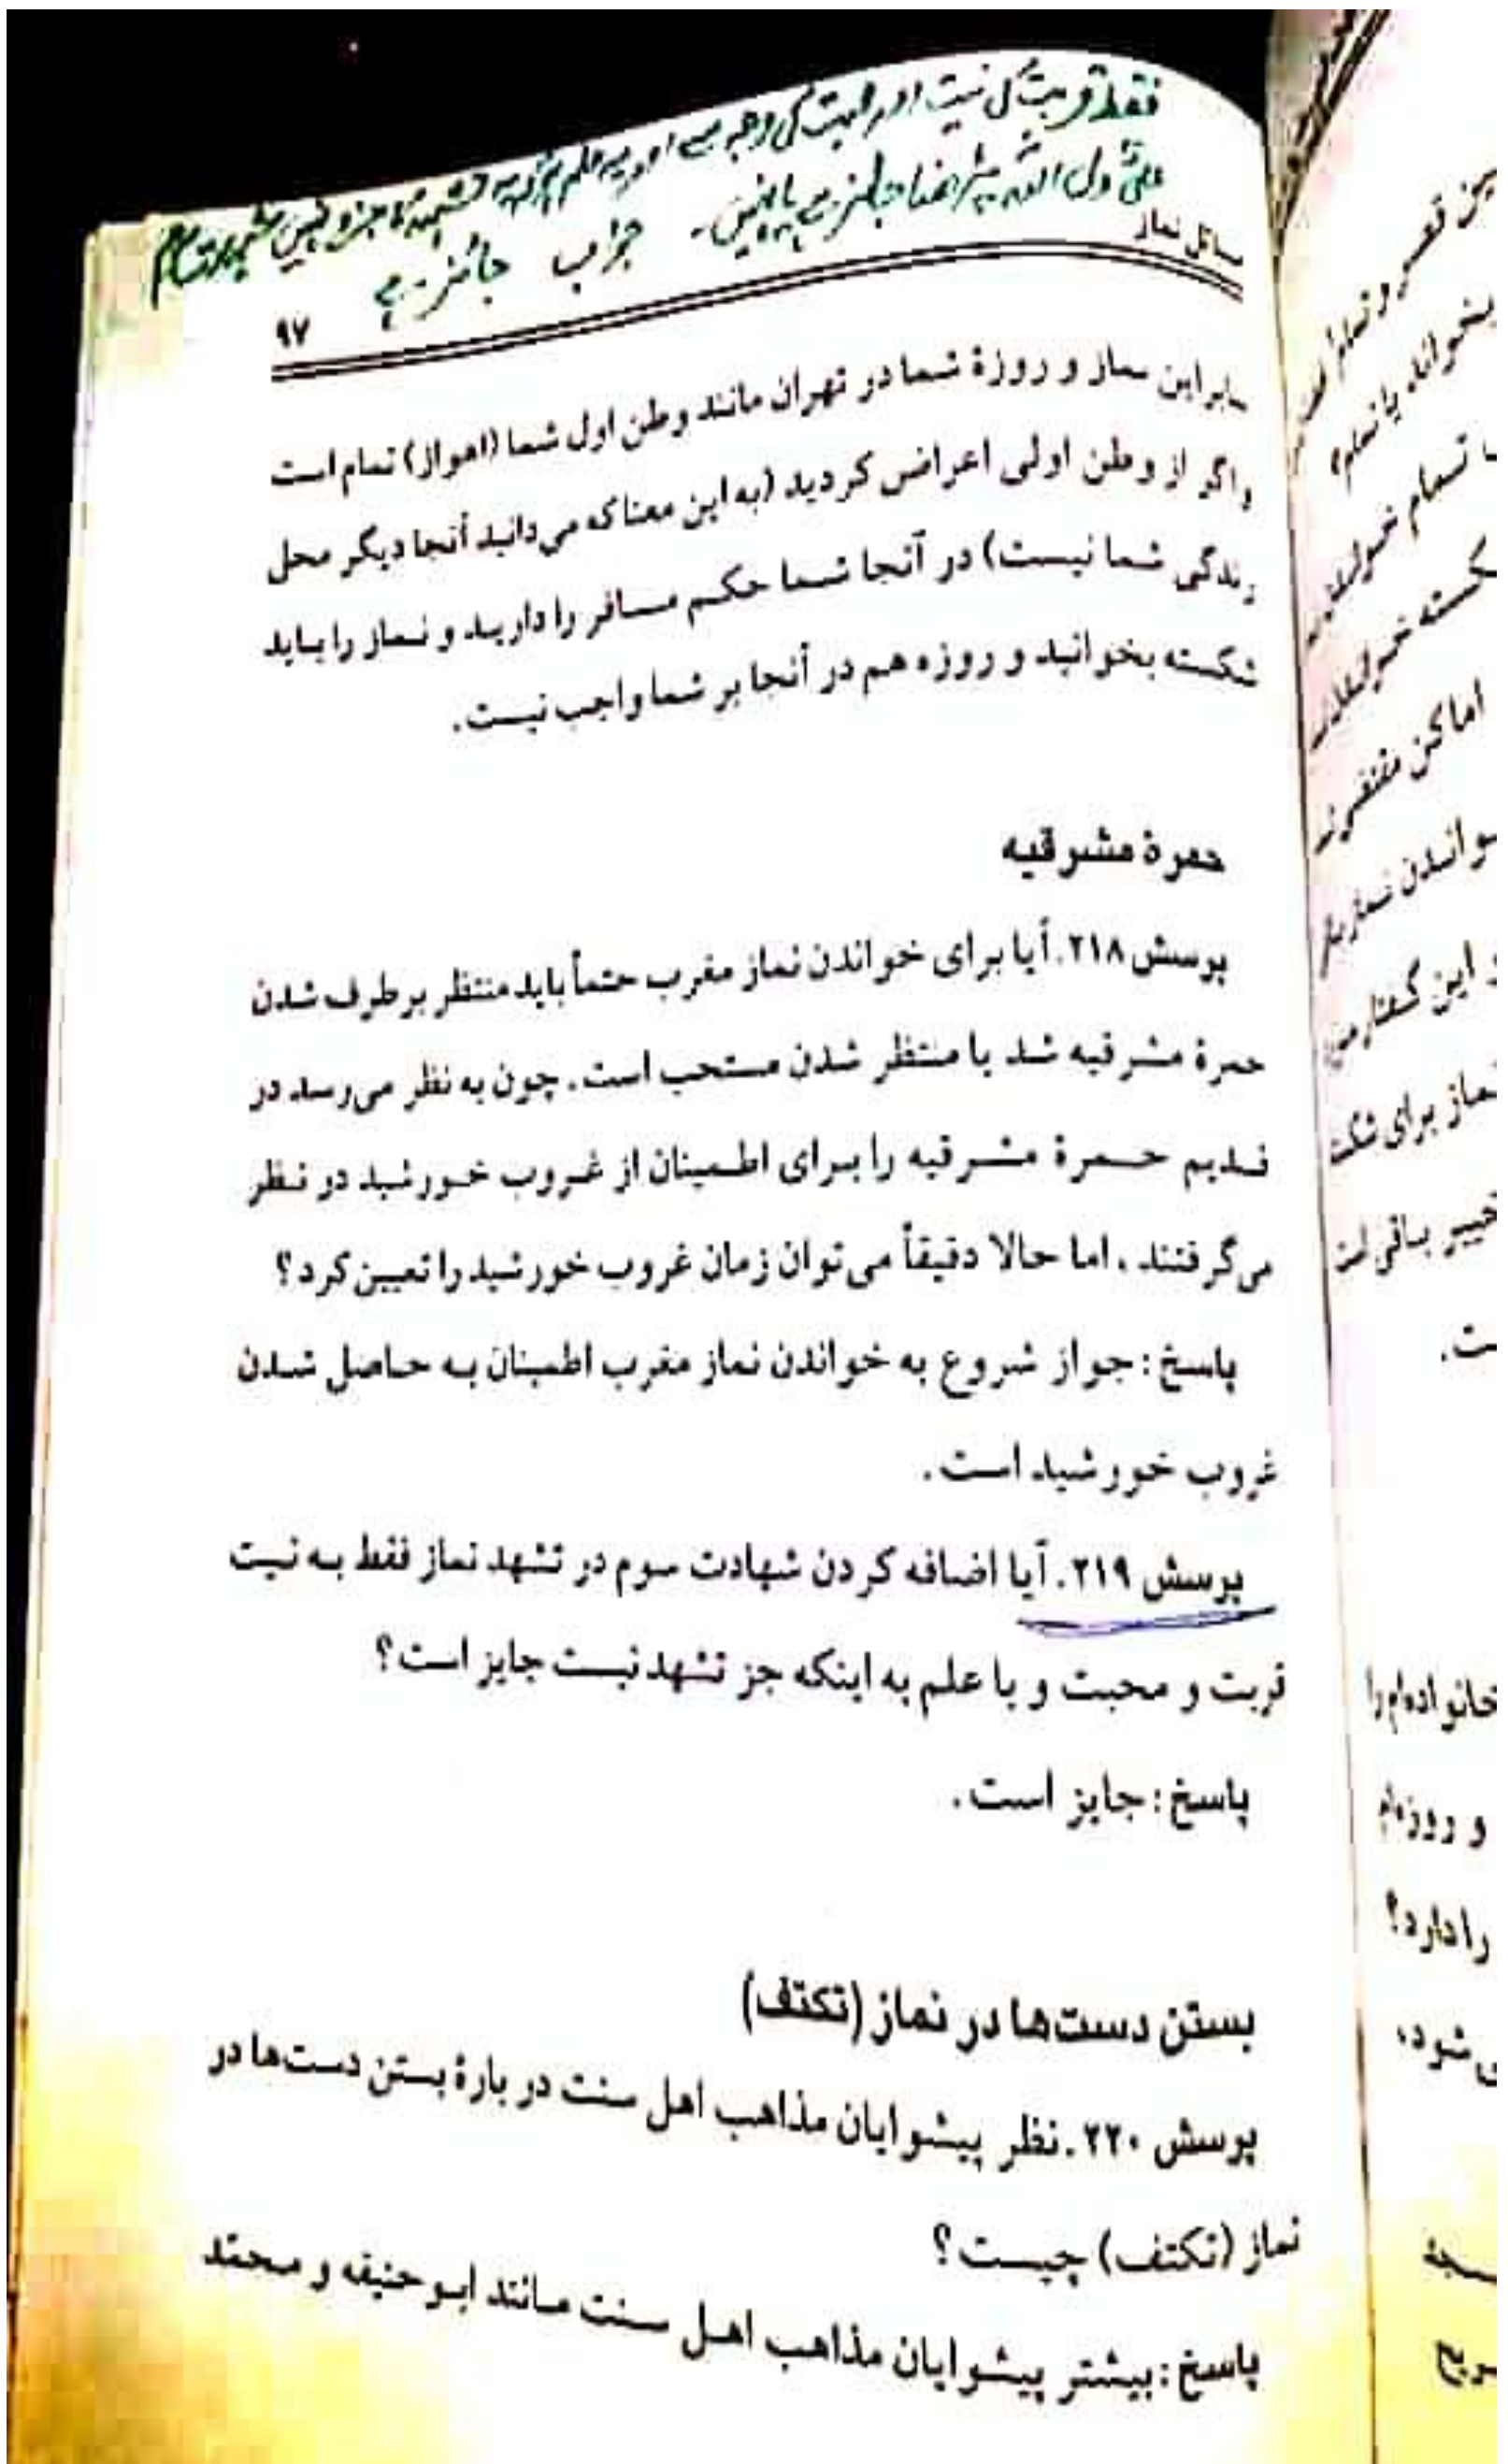 فقط قربت کی نیت اور محبت کی وجہ سے اور یہ علم تشہد کا جزو نہیں
علیؑ ولی اللہ پڑھنا جائز ہے یا نہیں۔ جواب جائز ہے
مسائل نماز
۹۷
نماز و روزهٔ شما در تهران مانند وطن اول شما (اهواز) تمام است
واگر از وطن اولی اعراض کردید (به این معنا که می‌دانید آنجا دیگر محل
زندگی شما نیست) در آنجا شما حکم مسافر را دارید و نماز را باید
شکسته بخوانید و روزه هم در آنجا بر شما واجب نیست.
حمرهٔ مشرقیه
پرسش ۲۱۸. آیا برای خواندن نماز مغرب حتماً باید منتظر برطرف شدن
حمرهٔ مشرقیه شد یا منتظر شدن مستحب است. چون به نظر می‌رسد در
قدیم حمرهٔ مشرقیه را برای اطمینان از غروب خورشید در نظر
می‌گرفتند، اما حالا دقیقاً می‌توان زمان غروب خورشید را تعیین کرد؟
پاسخ: جواز شروع به خواندن نماز مغرب اطمینان به حاصل شدن
غروب خورشید است.
پرسش ۲۱۹. آیا اضافه کردن شهادت سوم در تشهد نماز فقط به نیت
قربت و محبت و با علم به اینکه جز تشهد نیست جایز است؟
پاسخ: جایز است.
بستن دست‌ها در نماز (تکتف)
پرسش ۲۲۰. نظر پیشوایان مذاهب اهل سنت دربارهٔ بستن دست‌ها در
نماز (تکتف) چیست؟
پاسخ: بیشتر پیشوایان مذاهب اهل سنت مانند ابوحنیفه و محمّد
اماکن
نماز برای
است.
و روزه‌ام
را دارد؟